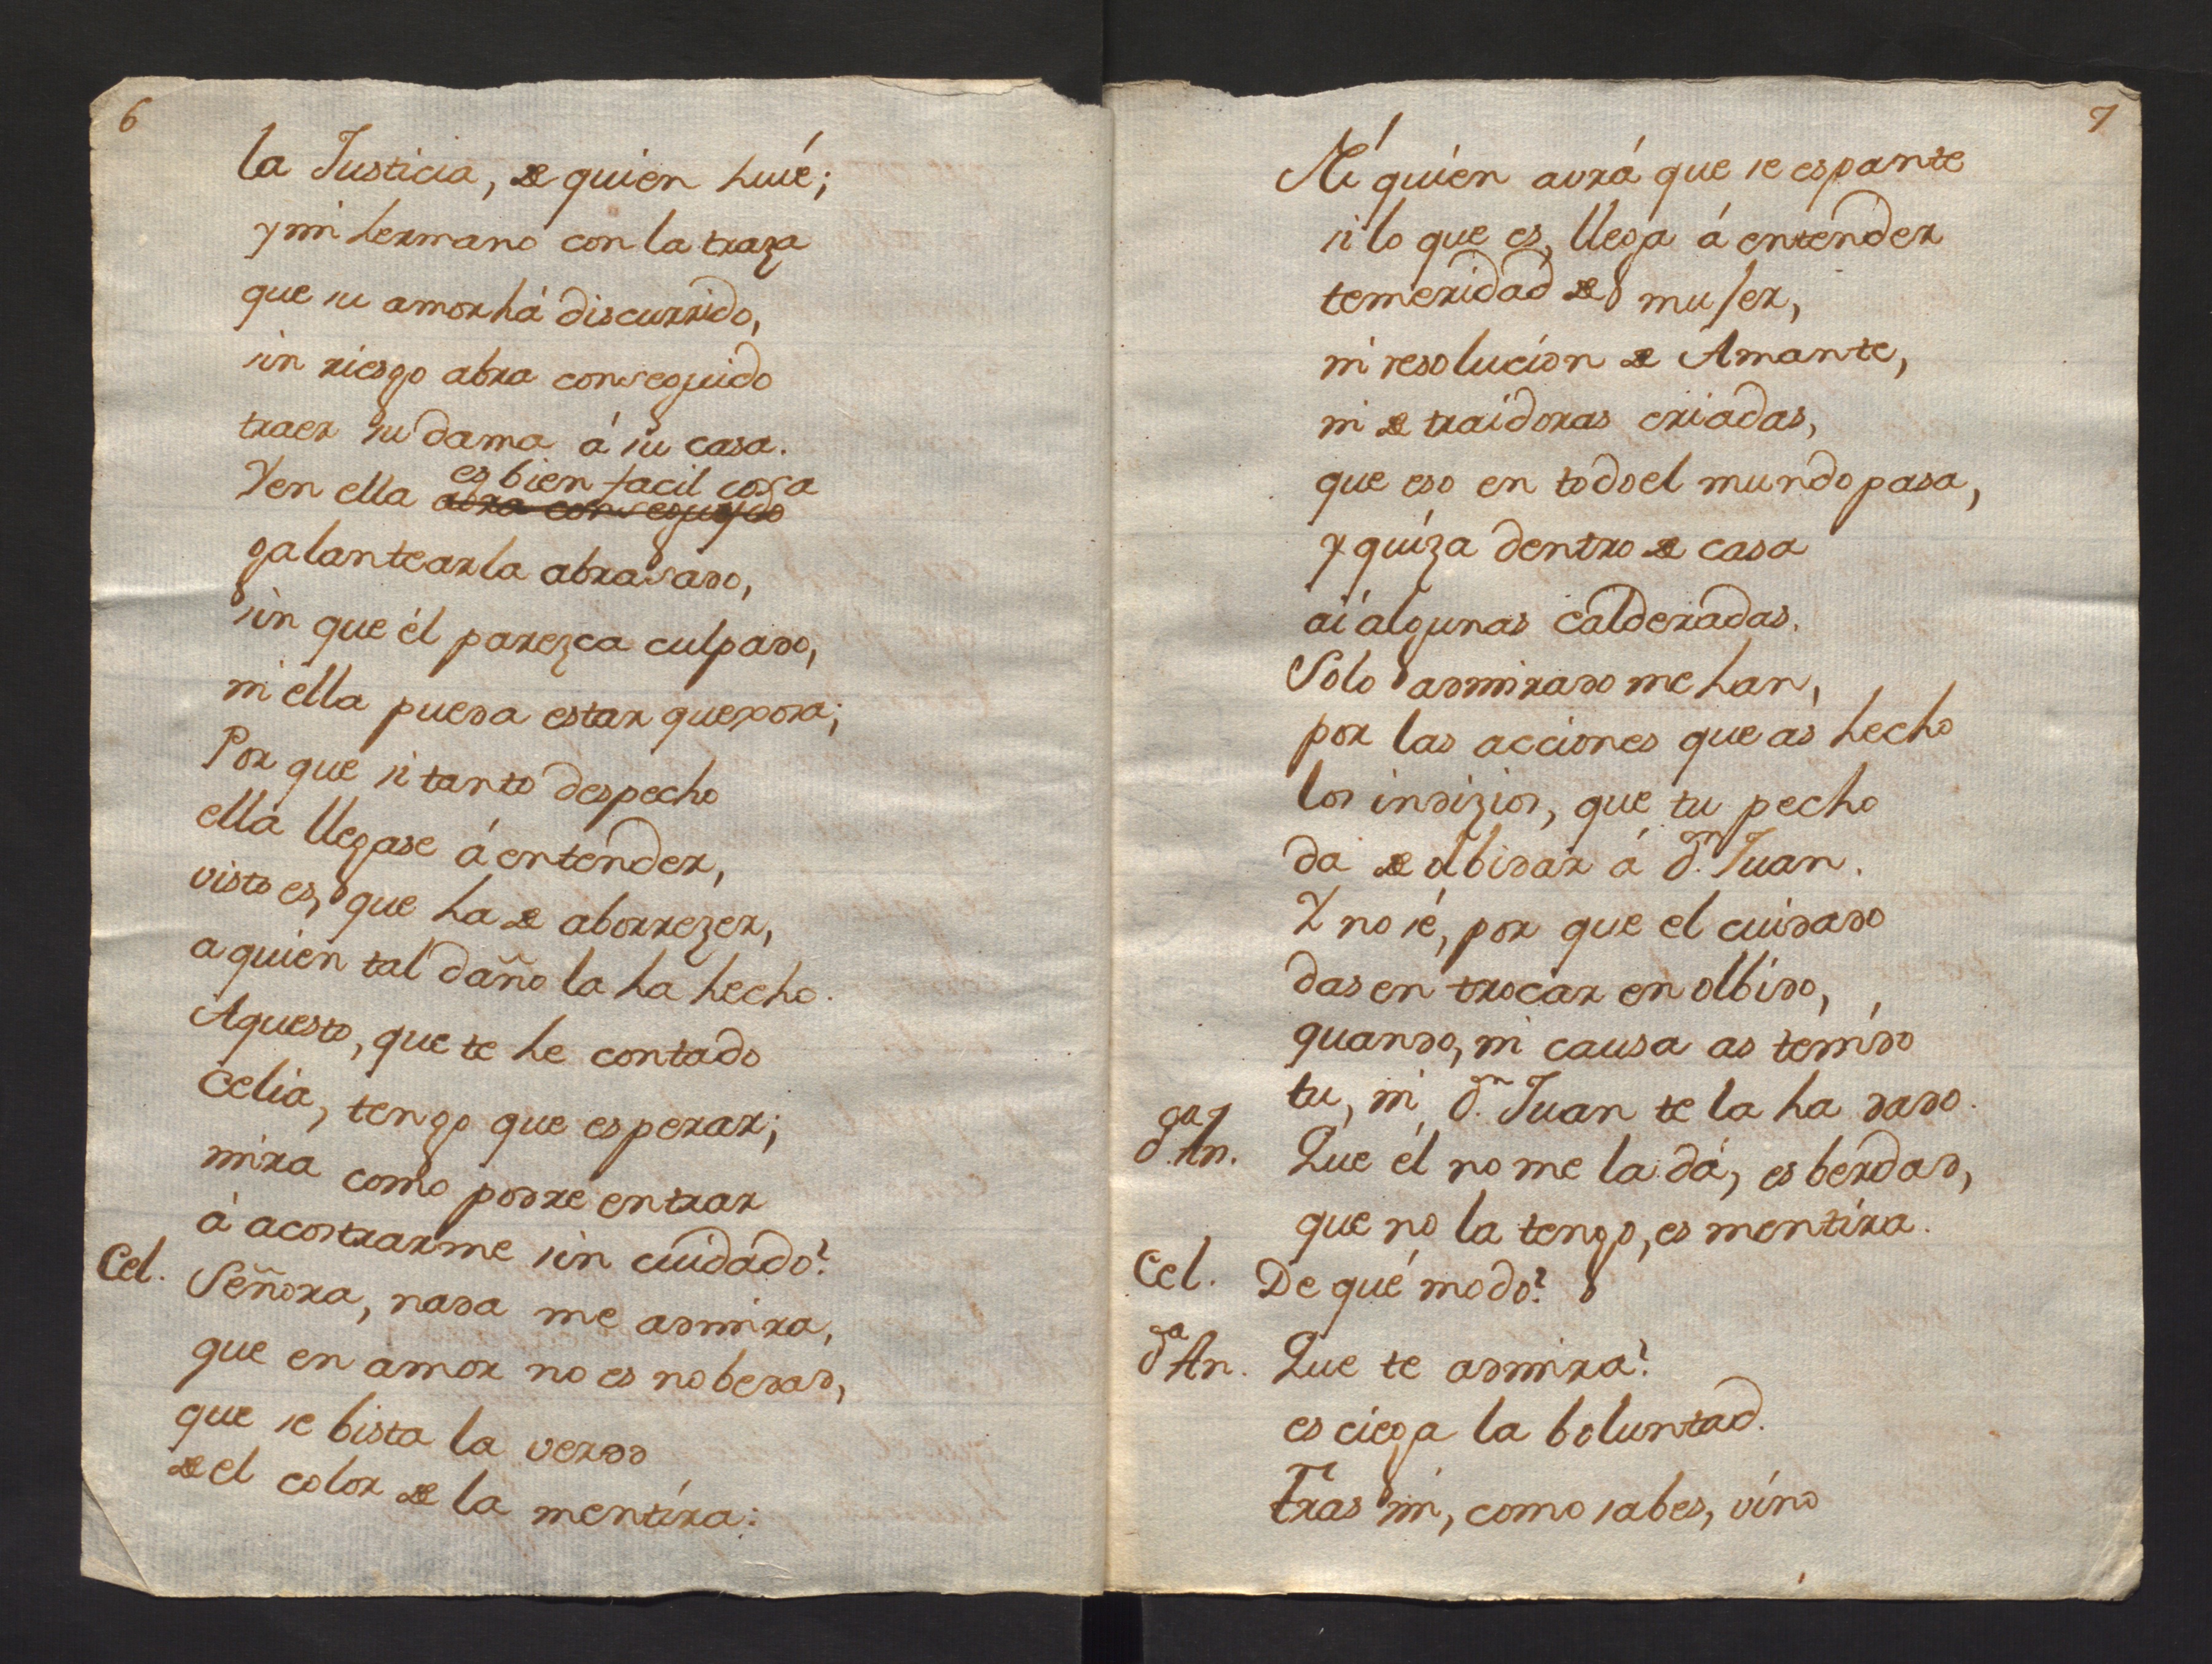 6
la Justicia, de quien huié;
y mi hermano con la traza
que su amor há discurrido,
sin riesgo abra conseguido
traer su dama á su casa.
es bien facil cosa
Yen ella abra conseguido
galantearla abrasado,
sin que él parezca culpado,
ni ella pueda estar quexosa;
Por que si tanto despecho
ella llegase á entender,
visto es, que ha de aborrezer,
a quien tal daño la ha hecho.
Aquesto, que te he contado
Celia, tengo que esperar;
mira como podre entrar
á acostrarme sin cuidado?
Cel. Señora, nada me admira,
que en amor no es nobedad,
que se bista la verdd
de el color de la mentira:
7
Ni quien avrá que se espante
si lo que es, llega á entender
temeridad de muger,
ni resolucion de Amante,
ni de traidoras criadas,
que eso en todo el mundo pasa,
y quiza dentro de casa
ai algunas calderadas.
Solo admirado me han,
por las acciones que as hecho
los indizios, que tu pecho
da de olbidar á dn. Juan.
Y no sé, por que el cuidado
das en trocar en olbido,
quando, ni causa as tenido
tu, ni dn. Juan te la ha dado.
da. An. Que él no me la dá, es berdad,
que no la tengo, es mentira.
Cel. De qué modo?
da An. Que te admira?
es ciega la boluntad.
Tras mi, como sabes, vino